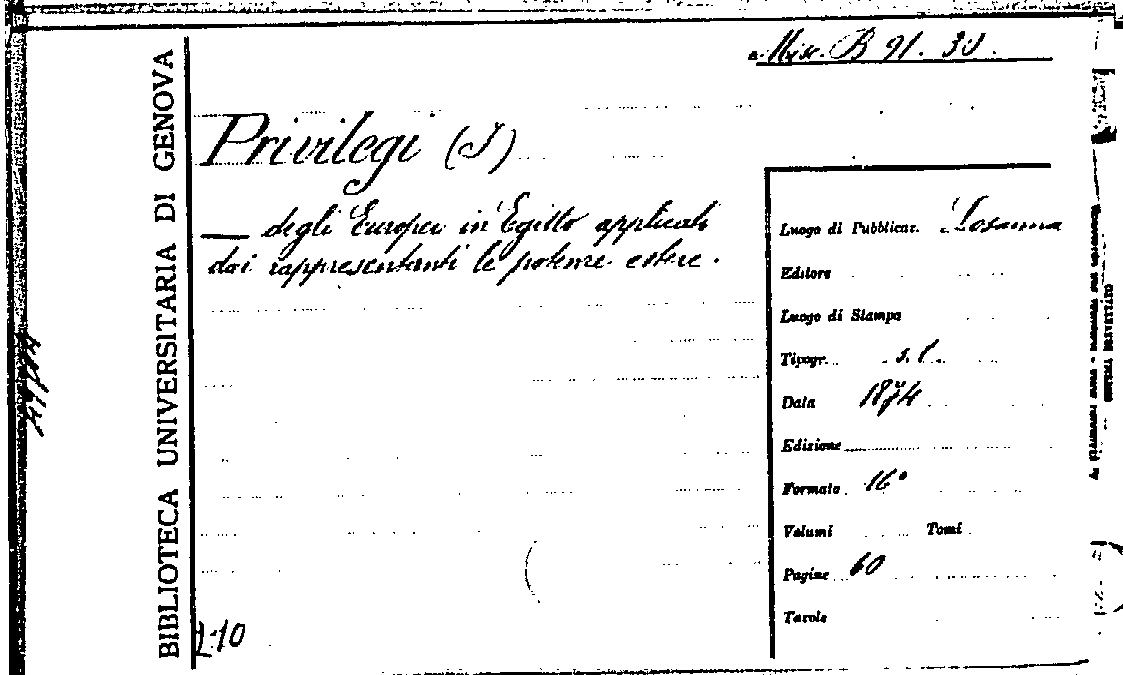 Misc. B 91. 30.
BIBLIOTECA UNIVERSITARIA DI GENOVA
Privilegi (I)
— degli Europei in Egitto applicati
dai rappresentanti le potenze estere.
Luogo di Pubblicaz. Losanna
Editore
Luogo di Stampa
Tipogr. s. l.
Data 1874
Edizione
Formato 16°
Volumi Tomi
Pagine 60
Tavole